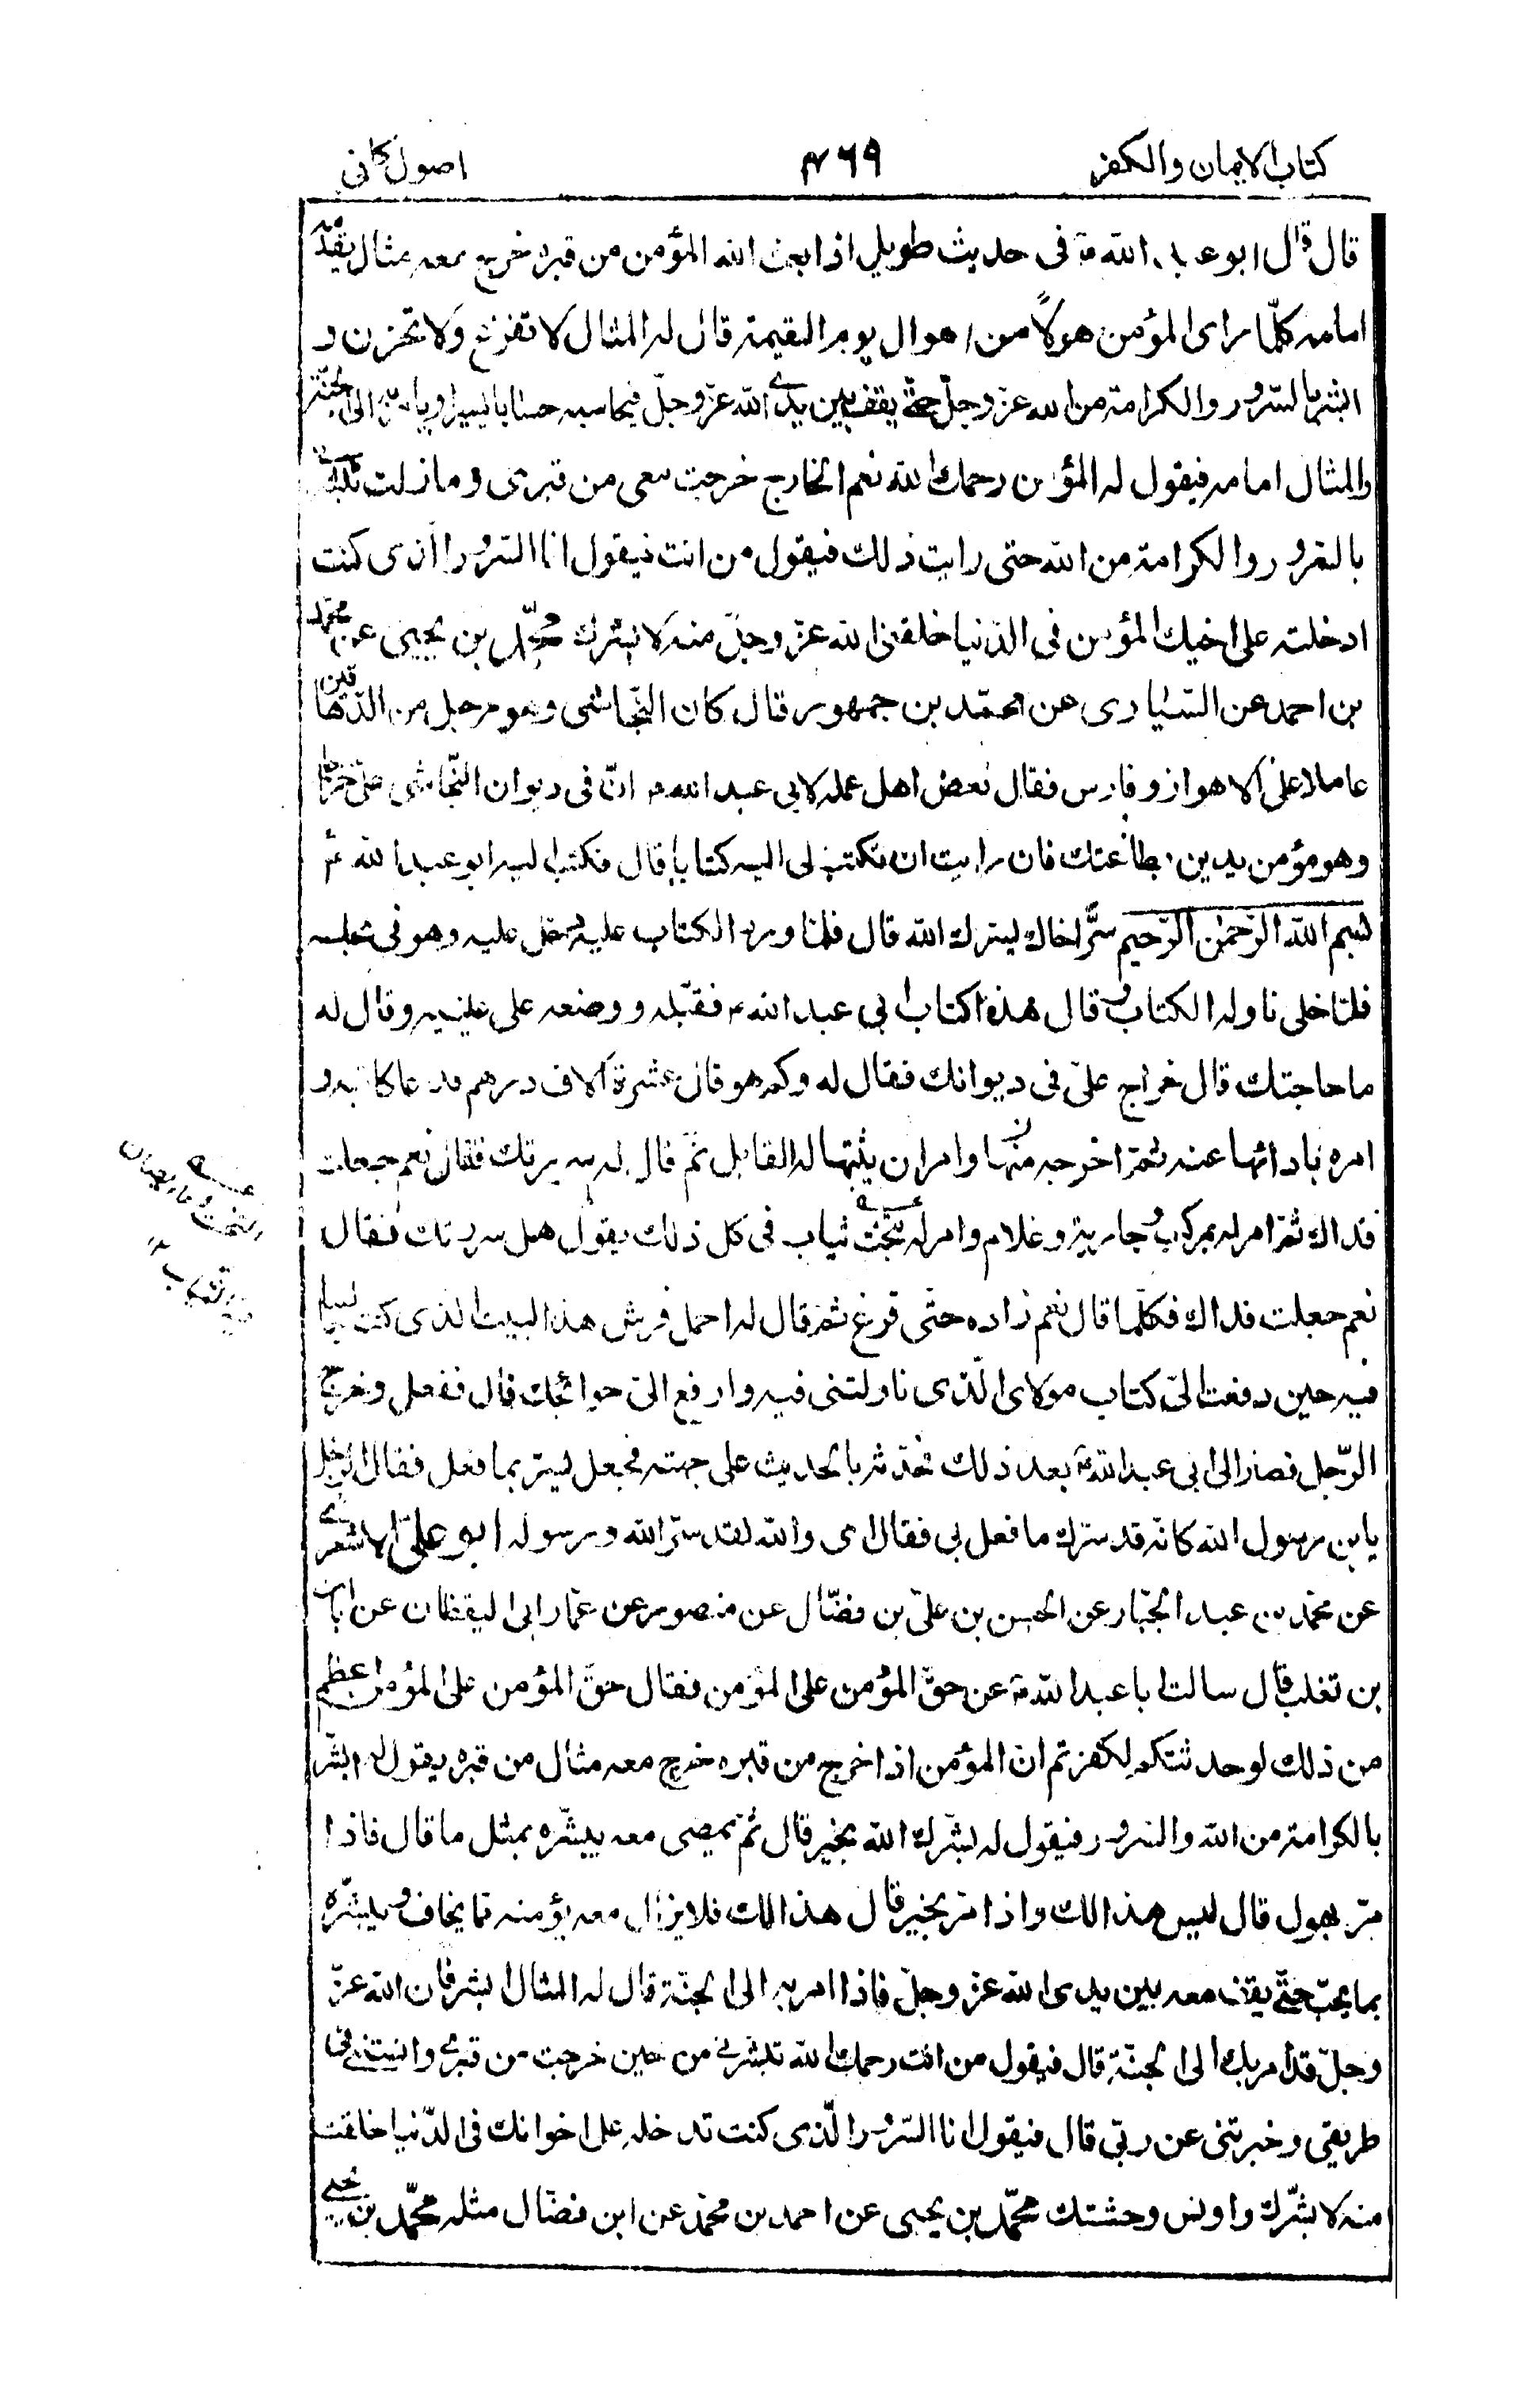 كتاب الايمان والكفر ٤٦٩ اصول كافى
قال قال ابو عبد الله ع فى حديث طويل اذا بعث الله المؤمن من قبره خرج معه مثال يقدمه
امامه كلّما راى المؤمن هولاً من اهوال يوم القيمة قال له المثال لا تفزع ولا تحزن و
ابشر بالسّرور والكرامة من الله عزّ وجلّ حتّى يقف بين يدى الله عزّ وجلّ فيحاسبه حسابا يسيرا ويامر به الى الجنّة
والمثال امامه فيقول له المؤمن رحمك الله نعم الخارج خرجت معى من قبرى وما زلت تبشّرنى
بالسّرور والكرامة من الله حتى رايت ذلك فيقول من انت فيقول انا السّرور الّذى كنت
ادخلته على اخيك المؤمن فى الدّنيا خلقنى الله عزّ وجلّ منه لابشّرك محمّد بن يحيى عن محمّد
بن احمد عن السّيّارى عن محمّد بن جمهور قال كان النّجاشى وهو رجل من الدّهاقين
عاملا على الاهواز وفارس فقال بعض اهل عمله لابى عبد الله ع انّ فى ديوان النّجاشى علىّ خراجا
وهو مؤمن يدين بطاعتك فان رايت ان تكتب لى اليه كتابا قال فكتب اليه ابو عبد الله ع
بسم الله الرّحمٰن الرّحيم سرّ اخاك يسرّك الله قال فلمّا ورد الكتاب عليه دخل عليه وهو فى مجلسه
فلمّا خلى ناوله الكتاب وقال هذا كتاب ابى عبد الله ع فقبّله ووضعه على عينيه وقال له
ما حاجتك قال خراج علىّ فى ديوانك فقال له وكم هو قال عشرة آلاف درهم فدعا كاتبه و
امره بادائها عنه ثمّ اخرجه منها وامر ان يثبتها له لقابل ثمّ قال له سررتك فقال نعم جعلت
فداك ثمّ امر له بمركب وجارية وغلام وامر له بتخت ثياب فى كل ذلك يقول هل سررتك فيقول
نعم جعلت فداك فكلّما قال نعم زاده حتّى فرغ ثمّ قال له احمل فرش هذا البيت الذى كنت جالسا
فيه حين دفعت الىّ كتاب مولاى الّذى ناولتنى فيه وارفع الىّ حوائجك قال ففعل وخرج
الرّجل فصار الى ابى عبد الله ع بعد ذلك فحدّثه بالحديث على جهته فجعل يسرّ بما فعل فقال الرجل
يا بن رسول الله كانّه قد سرّك ما فعل بى فقال اى والله لقد سرّ الله ورسوله ابو علىّ الاشعرى
عن محمّد بن عبد الجبّار عن الحسن بن علىّ بن فضّال عن منصور عن عمّار ابى اليقظان عن ابان
بن تغلب قال سالت ابا عبد الله ع عن حقّ المؤمن على المؤمن فقال حقّ المؤمن على المؤمن اعظم
من ذلك لو حدثتكم لكفرتم ان المؤمن اذا خرج من قبره خرج معه مثال من قبره يقول له ابشر
بالكرامة من الله والسّرور فيقول له بشّرك الله بخير قال ثمّ يمضى معه يبشّره بمثل ما قال فاذا
مرّ بهول قال ليس هذا لك واذا مرّ بخير قال هذا لك فلا يزال معه يؤمنه ممّا يخاف ويبشّره
بما يحبّ حتّى يقف معه بين يدى الله عزّ وجلّ فاذا امر به الى الجنّة قال له المثال ابشر فان الله عزّ
وجلّ قد امر بك الى الجنّة قال فيقول من انت رحمك الله تبشّرنى من حين خرجت من قبرى وانستنى فى
طريقى وخبرتنى عن ربّى قال فيقول انا السّرور الّذى كنت تدخله على اخوانك فى الدّنيا خلقت
منه لابشّرك واونس وحشتك محمّد بن يحيى عن احمد بن محمّد عن ابن فضّال مثله محمّد بن يحيى
التخت وعاء يصان
فيه الثياب